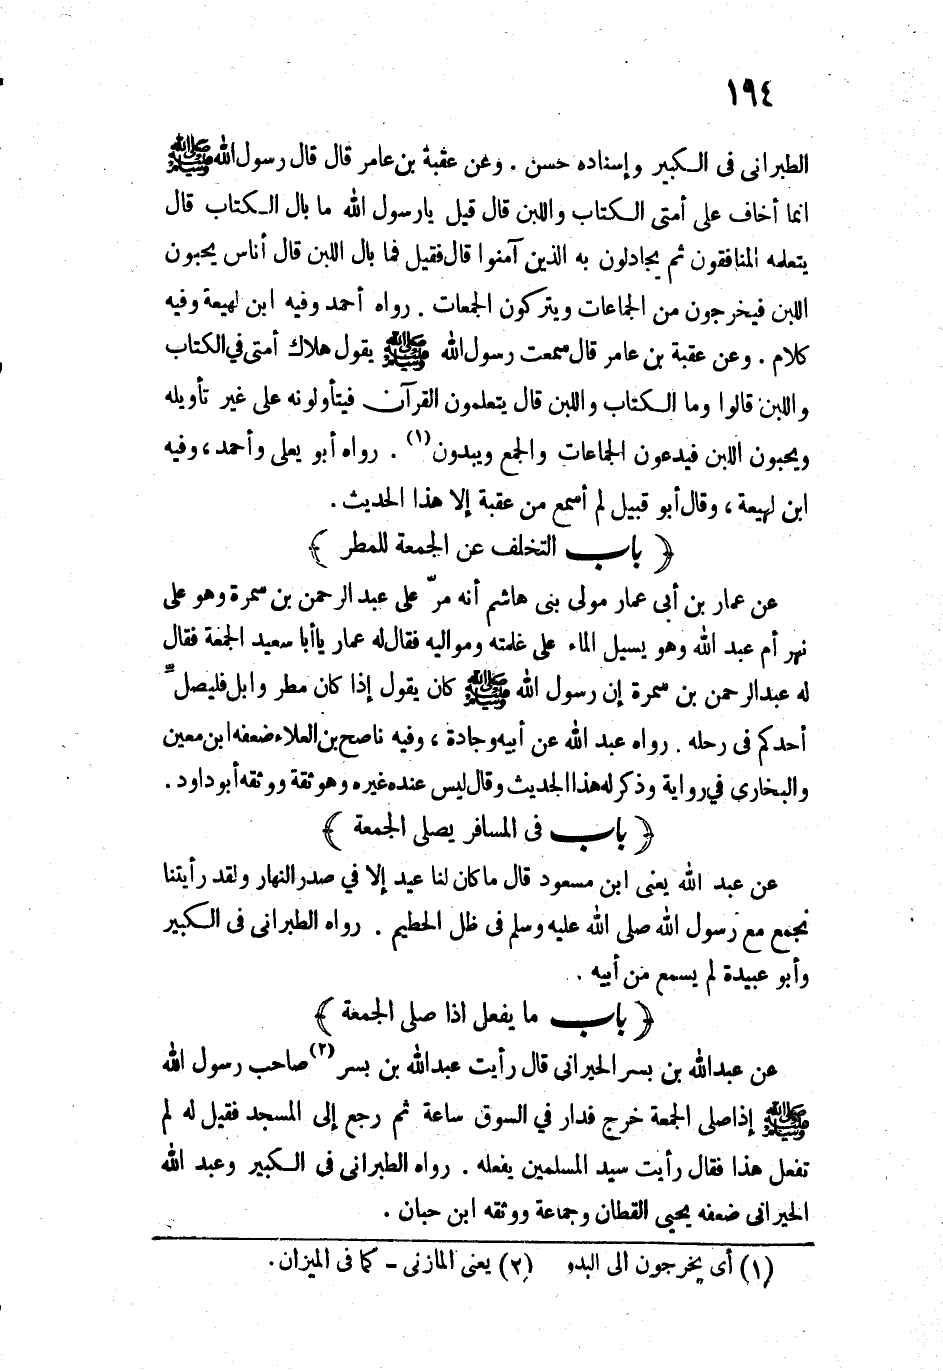 ١٩٤
الطبرانى فى الكبير وإسناده حسن . وعن عقبة بن عامر قال قال رسول الله ﷺ
انما أخاف على أمتى الكتاب واللبن قال قيل يارسول الله ما بال الكتاب قال
يتعلمه المنافقون ثم يجادلون به الذين آمنوا قال فقيل فما بال اللبن قال أناس يحبون
اللبن فيخرجون من الجماعات ويتركون الجمعات . رواه أحمد وفيه ابن لهيعة وفيه
كلام . وعن عقبة بن عامر قال سمعت رسول الله ﷺ يقول هلاك أمتى في الكتاب
واللبن قالوا وما الكتاب واللبن قال يتعلمون القرآن فيتأولونه على غير تأويله
ويحبون اللبن فيدعون الجماعات والجمع ويبدون (١) . رواه أبو يعلى وأحمد ، وفيه
ابن لهيعة ، وقال أبو قبيل لم أسمع من عقبة إلا هذا الحديث .
﴿ باب التخلف عن الجمعة للمطر ﴾
عن عمار بن أبي عمار مولى بنى هاشم أنه مرّ على عبد الرحمن بن سمرة وهو على
نهر أم عبد الله وهو يسيل الماء على غلمته ومواليه فقال له عمار ياأبا سعيد الجمعة فقال
له عبد الرحمن بن سمرة إن رسول الله ﷺ كان يقول إذا كان مطر وابل فليصلّ
أحدكم فى رحله . رواه عبد الله عن أبيه وجادة ، وفيه ناصح بن العلاء ضعفه ابن معين
والبخارى في رواية وذكر له هذا الحديث وقال ليس عنده غيره وهو ثقة ووثقه أبو داود .
﴿ باب فى المسافر يصلى الجمعة ﴾
عن عبد الله يعنى ابن مسعود قال ما كان لنا عيد إلا في صدر النهار ولقد رأيتنا
نجمع مع رسول الله صلى الله عليه وسلم فى ظل الحطيم . رواه الطبرانى فى الكبير
وأبو عبيدة لم يسمع من أبيه .
﴿ باب ما يفعل اذا صلى الجمعة ﴾
عن عبد الله بن بسر الحيرانى قال رأيت عبد الله بن بسر (٢) صاحب رسول الله
ﷺ إذا صلى الجمعة خرج فدار في السوق ساعة ثم رجع إلى المسجد فقيل له لم
تفعل هذا فقال رأيت سيد المسلمين يفعله . رواه الطبرانى فى الكبير وعبد الله
الحيرانى ضعفه يحيى القطان وجماعة ووثقه ابن حبان .
(١) أى يخرجون الى البدو (٢) يعنى المازنى - كما فى الميزان .